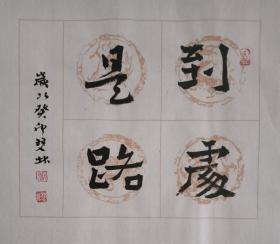 到處
是路
歲次癸卯